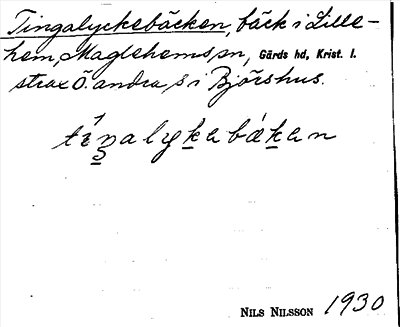 Tingalyckebäcken, bäck i Lille-
hem, Maglehems sn, Gärds hd, Krist. l.
strax Ö. andra, S i Björshus.
tíŋalykabǽkan
NILS NILSSON 1930